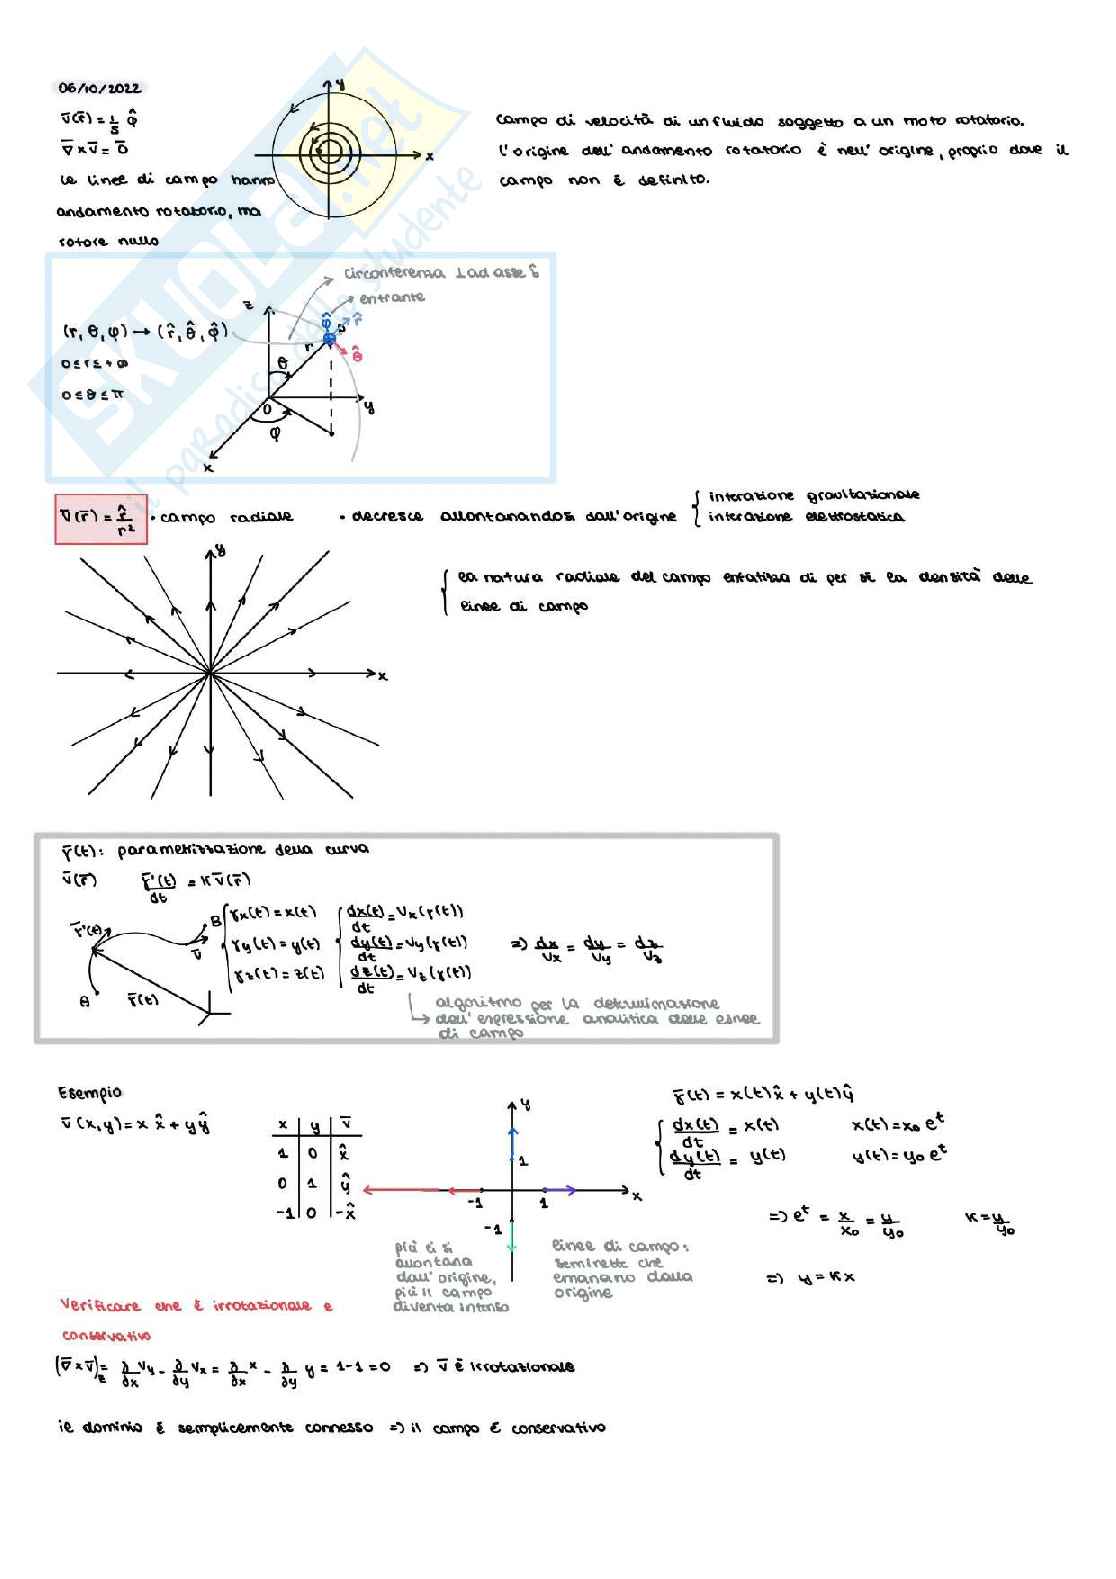 06/10/2022
v̅(r̅) = 1/s φ̂
∇̅ × v̅ = 0̅
le linee di campo hanno
andamento rotatorio, ma
rotore nullo
y
x
campo di velocità di un fluido soggetto a un moto rotatorio.
l'origine dell'andamento rotatorio è nell'origine, proprio dove il
campo non è definito.
SKUOLA.net
il paradiso dello studente
circonferenza ⊥ ad asse ẑ
entrante
(r, θ, φ) → (r̂, θ̂, φ̂)
0 ≤ r ≤ +∞
0 ≤ θ ≤ π
z
r
θ
φ̂
r̂
P
θ̂
O
y
φ
x
v̅(r̅) = r̂/r²
• campo radiale
• decresce allontanandosi dall'origine
{ interazione gravitazionale
interazione elettrostatica
y
x
{ la natura radiale del campo enfatizza di per sé la densità delle
linee di campo
γ̅(t): parametrizzazione della curva
v̅(r̅)
γ̅'(t)/dt = K v̅(r̅)
γ̅'(t)
B
v̅
A
r̅(t)
{ γx(t) = x(t)
γy(t) = y(t)
γz(t) = z(t)
{ dx(t)/dt = Vx(γ(t))
dy(t)/dt = Vy(γ(t))
dz(t)/dt = Vz(γ(t))
=> dx/Vx = dy/Vy = dz/Vz
algoritmo per la determinazione
dell'espressione analitica delle linee
di campo
Esempio
v̅(x,y) = x x̂ + y ŷ
x | y | v̅
1 | 0 | x̂
0 | 1 | ŷ
-1 | 0 | -x̂
y
1
-1
1
x
-1
più ci si
allontana
dall'origine,
più il campo
diventa intenso
linee di campo:
semirette che
emanano dalla
origine
γ̅(t) = x(t)x̂ + y(t)ŷ
{ dx(t)/dt = x(t)
dy(t)/dt = y(t)
x(t) = x₀ eᵗ
y(t) = y₀ eᵗ
=> eᵗ = x/x₀ = y/y₀
K = y/y₀
=> y = Kx
Verificare che è irrotazionale e
conservativo
(∇̅ × v̅)z = ∂/∂x Vy - ∂/∂y Vx = ∂/∂x x - ∂/∂y y = 1-1 = 0 => v̅ è irrotazionale
il dominio è semplicemente connesso => il campo è conservativo